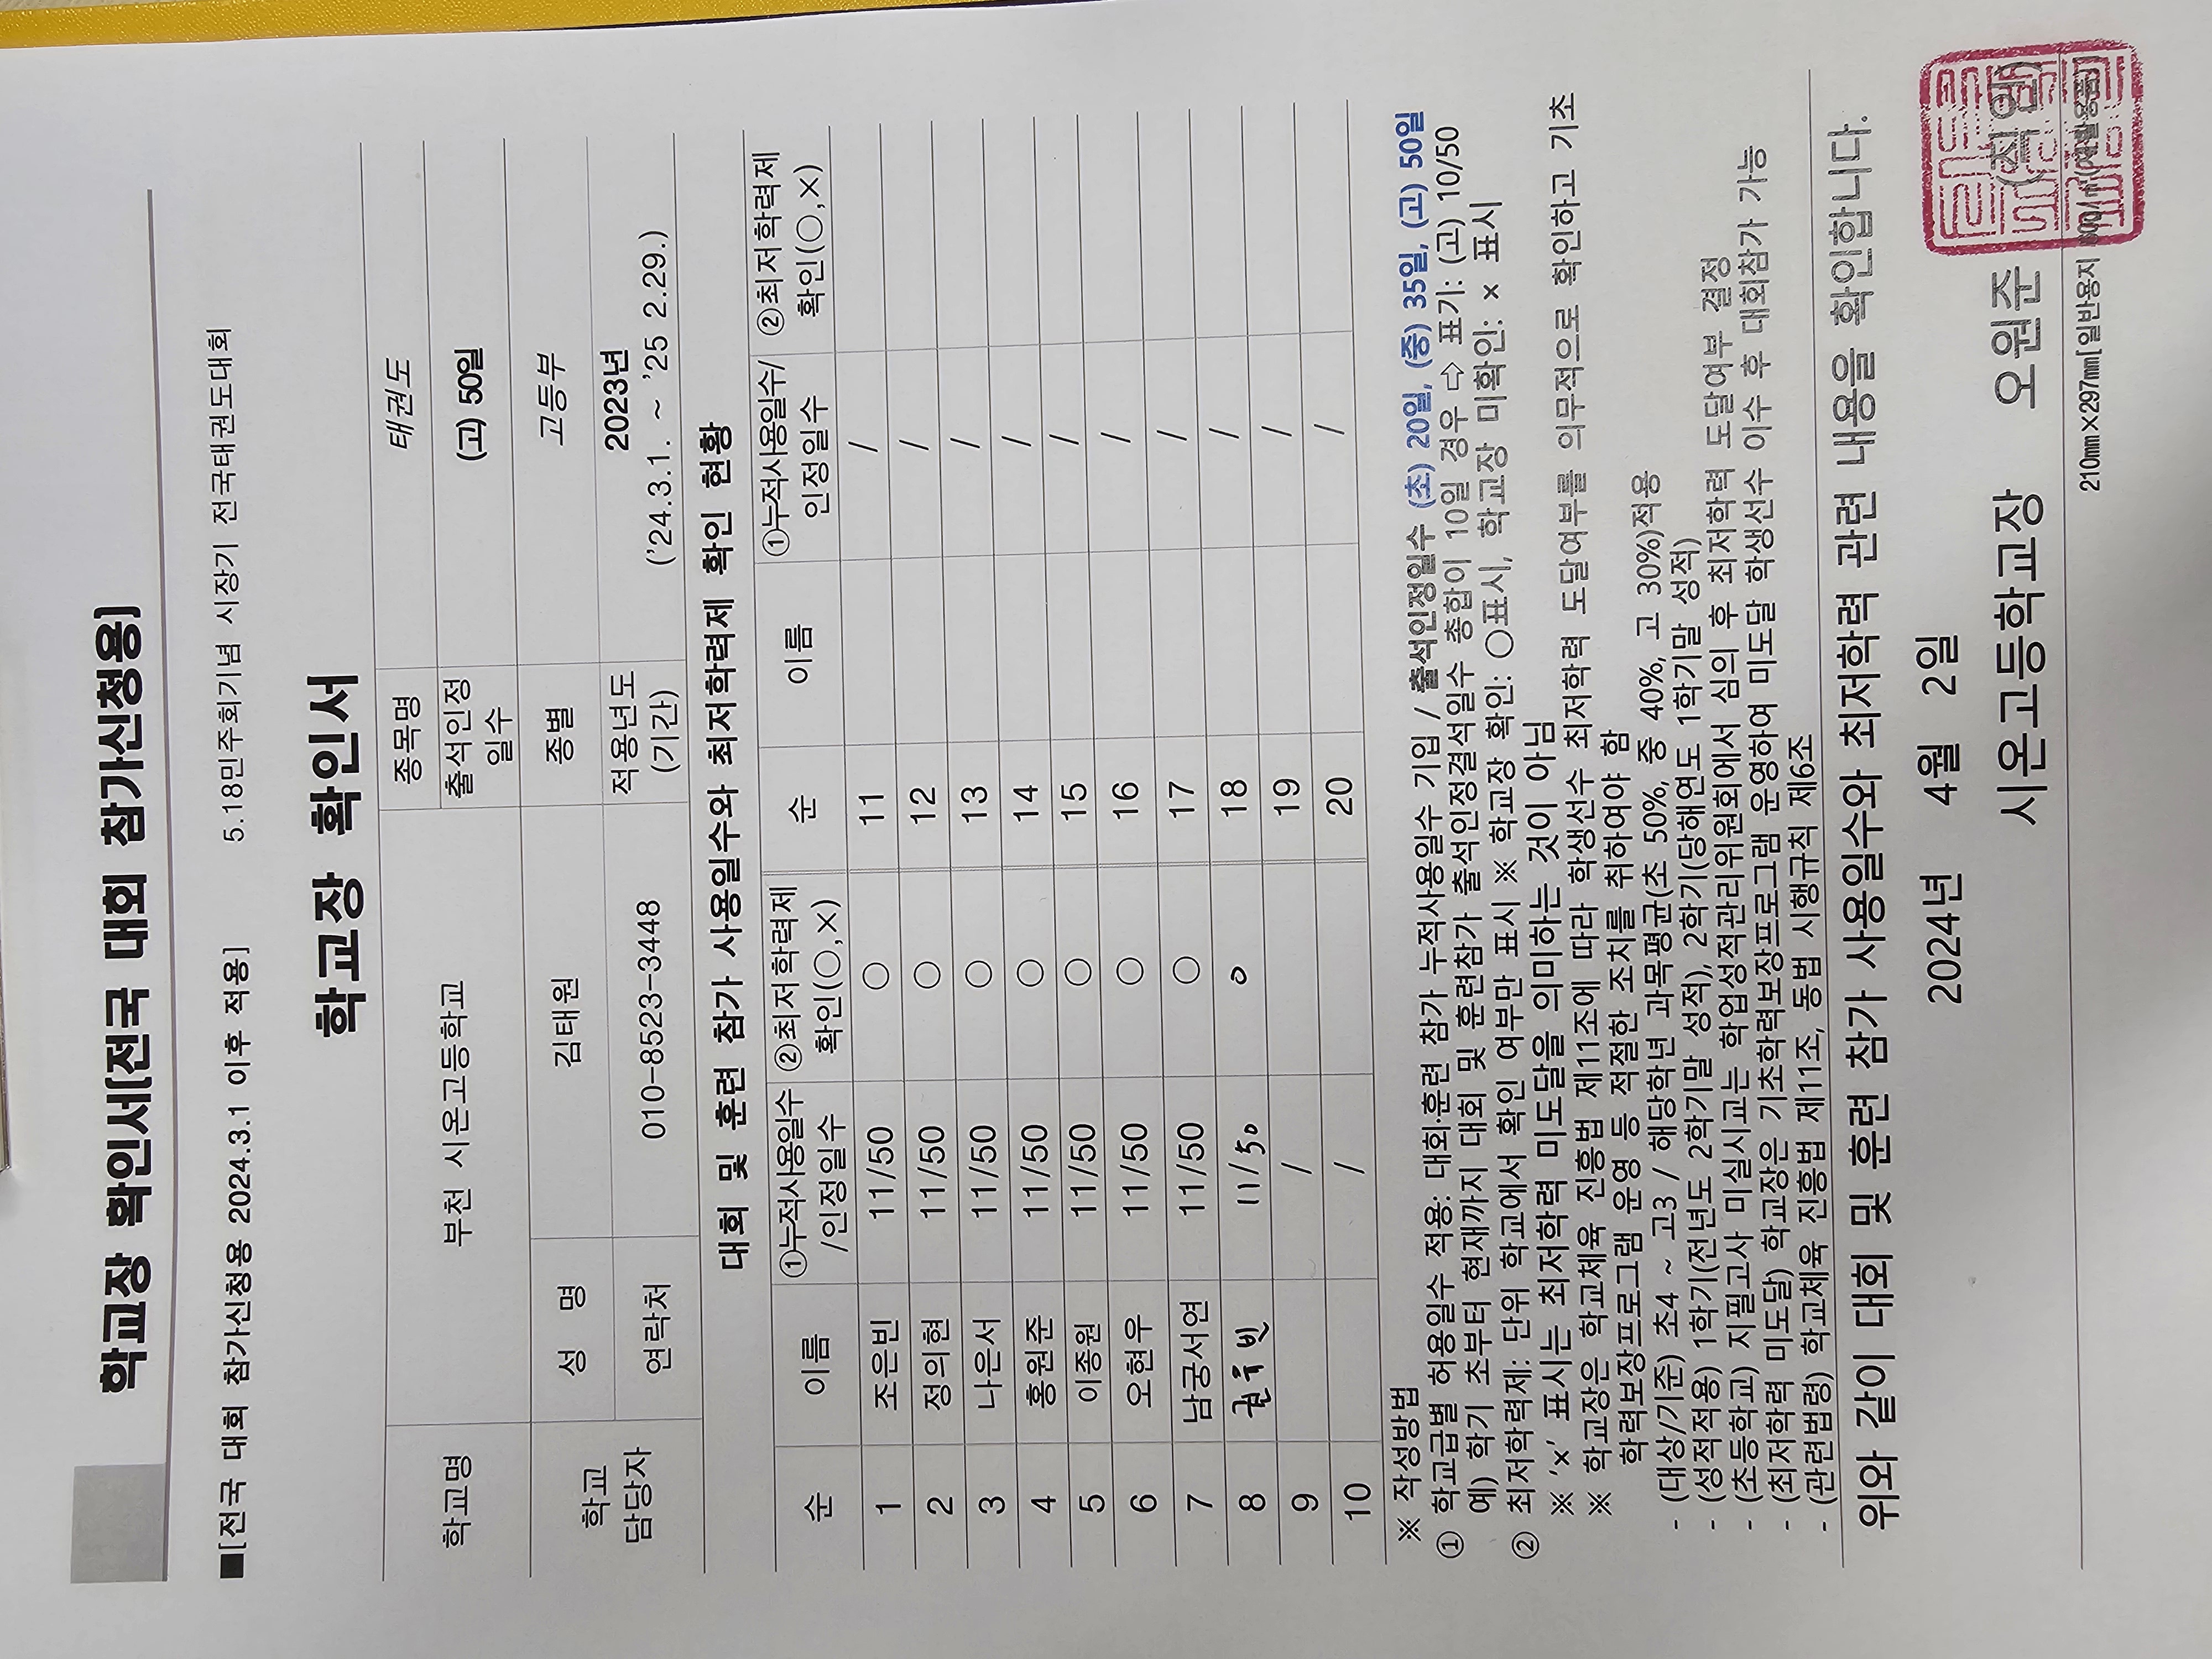 학교장 확인서[전국 대회 참가신청용]
■[전국 대회 참가신청용 2024.3.1 이후 적용]
5.18민주화기념 시장기 전국태권도대회
학교장 확인서
학교명 부천 시온고등학교 종목명 태권도
출석인정 일수 (고) 50일
학교 담당자 성 명 김태원 종별 고등부
연락처 010-8523-3448 적용년도 (기간) 2023년 ('24.3.1. ~ '25 2.29.)
대회 및 훈련 참가 사용일수와 최저학력제 확인 현황
순 이름 ①누적사용일수/인정일수 ②최저학력제 확인(○,×) 순 이름 ①누적사용일수/인정일수 ②최저학력제 확인(○,×)
1 조은빈 11/50 ○ 11 /
2 정의현 11/50 ○ 12 /
3 나은서 11/50 ○ 13 /
4 홍원준 11/50 ○ 14 /
5 이종원 11/50 ○ 15 /
6 오현우 11/50 ○ 16 /
7 남궁서연 11/50 ○ 17 /
8 11/50 ○ 18 /
9 / 19 /
10 / 20 /
※ 작성방법
① 학교급별 허용일수 적용: 대회·훈련 참가 누적사용일수 기입 / 출석인정일수 (초) 20일, (중) 35일, (고) 50일
예) 학기 초부터 현재까지 대회 및 훈련참가 출석인정결석일수 총합이 10일 경우 ⇨ 표기: (고) 10/50
② 최저학력제: 단위 학교에서 확인 여부만 표시 ※ 학교장 확인: ○표시, 학교장 미확인: × 표시
※ 'x' 표시는 최저학력 미도달을 의미하는 것이 아님
※ 학교장은 학교체육 진흥법 제11조에 따라 학생선수 최저학력 도달여부를 의무적으로 확인하고 기초
학력보장프로그램 운영 등 적절한 조치를 취하여야 함
- (대상/기준) 초4 ~ 고3 / 해당학년 과목평균(초 50%, 중 40%, 고 30%)적용
- (성적적용) 1학기(전년도 2학기말 성적), 2학기(당해연도 1학기말 성적)
- (초등학교) 지필고사 미실시교는 학업성적관리위원회에서 심의 후 최저학력 도달여부 결정
- (최저학력 미도달) 학교장은 기초학력보장프로그램 운영하여 미도달 학생선수 이수 후 대회참가 가능
- (관련법령) 학교체육 진흥법 제11조, 동법 시행규칙 제6조
위와 같이 대회 및 훈련 참가 사용일수와 최저학력 관련 내용을 확인합니다.
2024년 4월 2일
시온고등학교장 오원준 (직인)
210㎜×297㎜[일반용지